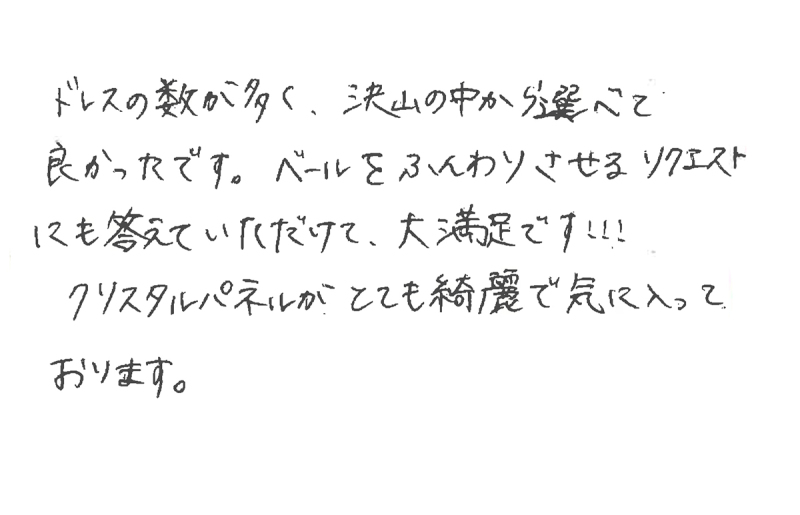 ドレスの数が多く、沢山の中から選べて
良かったです。ベールをふんわりさせるリクエスト
にも答えていただけて、大満足です!!!
クリスタルパネルがとても綺麗で気に入って
おります。